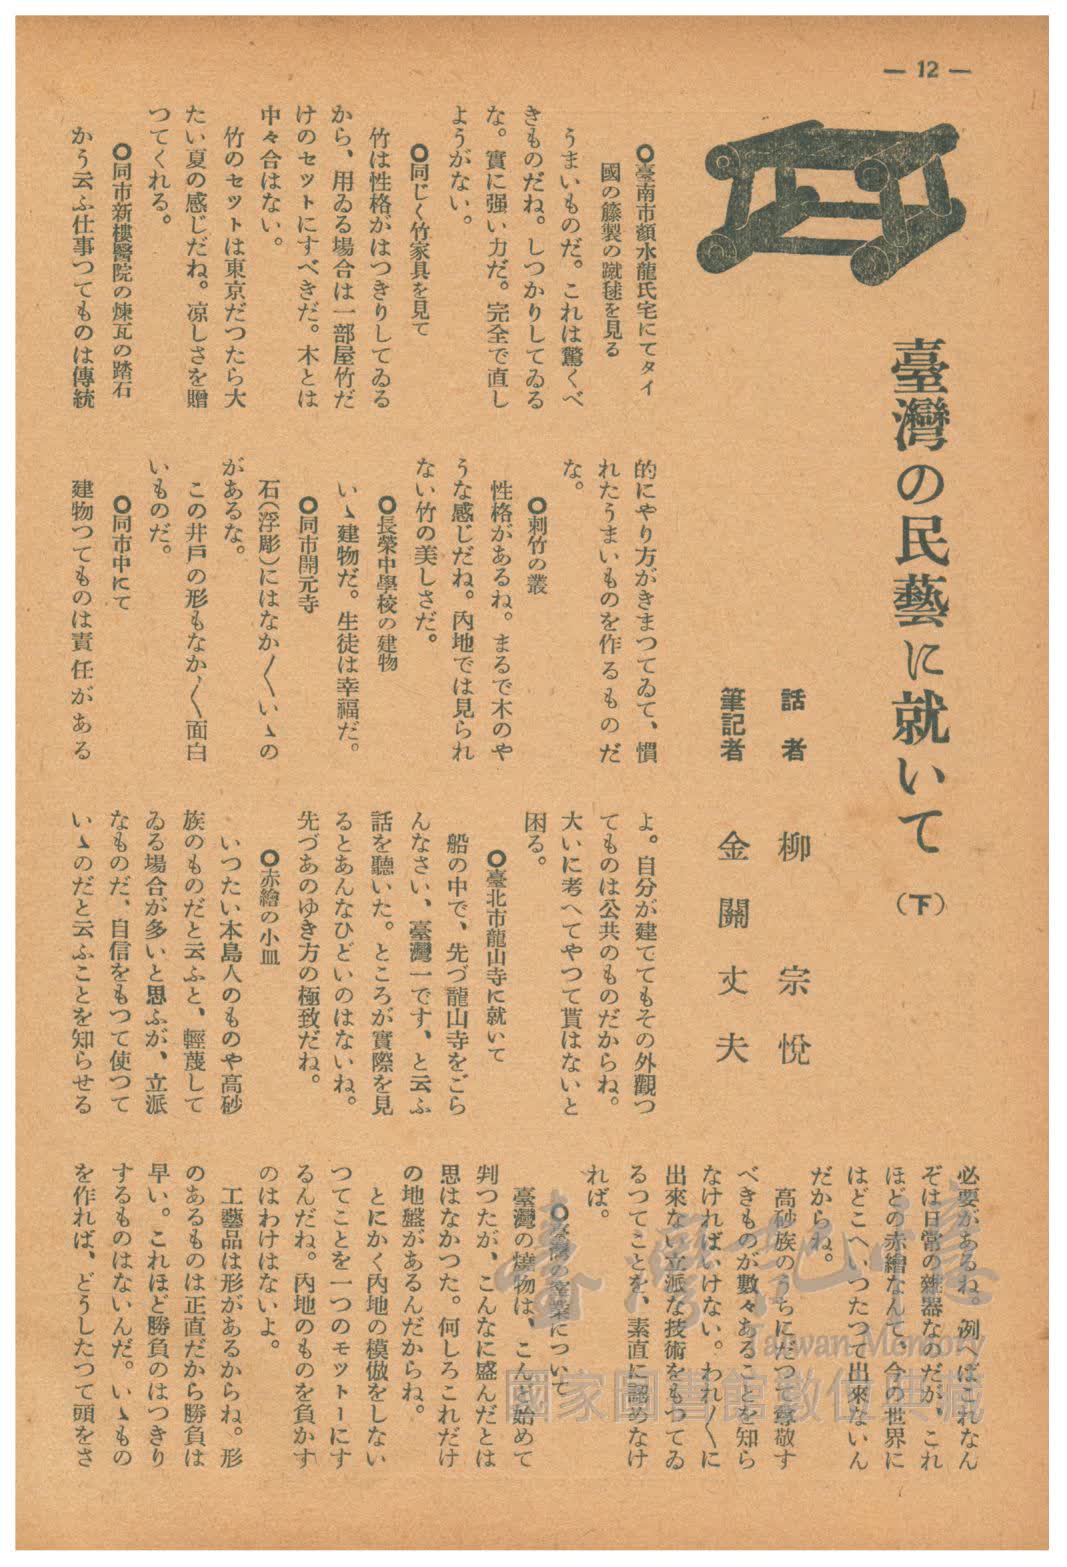 — 12 —
臺灣の民藝に就いて(下)
話者 柳宗悅
筆記者 金關丈夫
○臺南市顏水龍氏宅にてタイ
國の籐製の蹴毬を見る
うまいものだ。これは驚くべ
きものだね。しつかりしてゐる
な。實に强い力だ。完全で直し
ようがない。
○同じく竹家具を見て
竹は性格がはつきりしてゐる
から、用ゐる場合は一部屋竹だ
けのセットにすべきだ。木とは
中々合はない。
竹のセットは東京だつたら大
たい夏の感じだね。凉しさを贈
つてくれる。
○同市新樓醫院の煉瓦の踏石
かう云ふ仕事つてものは傳統
的にやり方がきまつてゐて、慣
れたうまいものを作るものだ
な。
○刺竹の叢
性格があるね。まるで木のや
うな感じだね。內地では見られ
ない竹の美しさだ。
○長榮中學校の建物
いゝ建物だ。生徒は幸福だ。
○同市開元寺
石(浮彫)にはなか〱いゝの
があるな。
この井戶の形もなか〱面白
いものだ。
○同市中にて
建物つてものは責任がある
よ。自分が建ててもその外觀つ
てものは公共のものだからね。
大いに考へてやつて貰はないと
困る。
○臺北市龍山寺に就いて
船の中で、先づ龍山寺をごら
んなさい、臺灣一です、と云ふ
話を聽いた。ところが實際を見
るとあんなひどいのはないね。
先づあのゆき方の極致だね。
○赤繪の小皿
いつたい本島人のものや高砂
族のものだと云ふと、輕蔑して
ゐる場合が多いと思ふが、立派
なものだ、自信をもつて使つて
いゝのだと云ふことを知らせる
必要があるね。例へばこれなん
ぞは日常の雜器なのだが、これ
ほどの赤繪なんて、今の世界に
はどこへいつたつて出來ないん
だからね。
高砂族のうちにだつて尊敬す
べきものが數々あることを知ら
なければいけない。われ〱に
出來ない立派な技術をもつてゐ
るつてことを、素直に認めなけ
れば。
○臺灣の窯業について
臺灣の燒物は、こんど始めて
判つたが、こんなに盛んだとは
思はなかつた。何しろこれだけ
の地盤があるんだからね。
とにかく內地の模倣をしない
つてことを一つのモットーにす
るんだね。內地のものを負かす
のはわけはないよ。
工藝品は形があるからね。形
のあるものは正直だから勝負は
早い。これほど勝負のはつきり
するものはないんだ。いゝもの
を作れば、どうしたつて頭をさ
臺灣記憶
Taiwan Memory
國家圖書館數位典藏